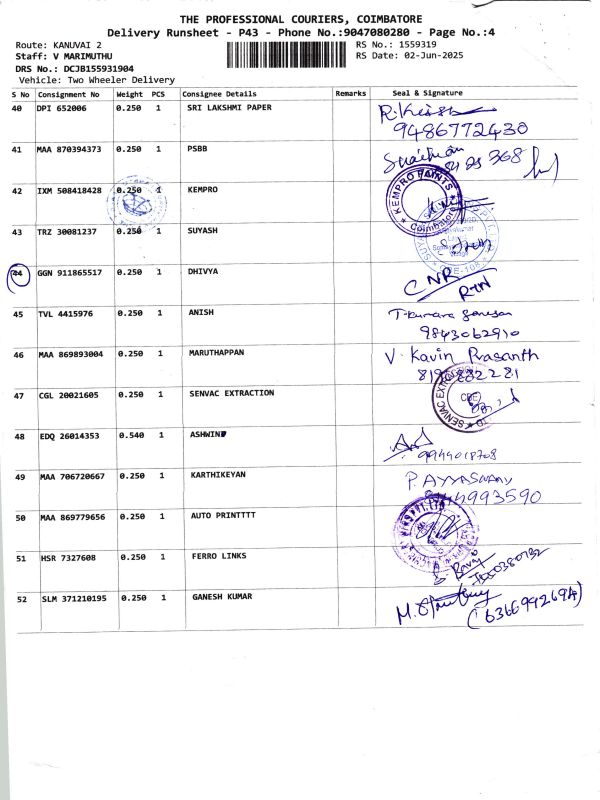 THE PROFESSIONAL COURIERS, COIMBATORE
Delivery Runsheet - P43 - Phone No.:9047080280 - Page No.:4
Route: KANUVAI 2 RS No.: 1559319
Staff: V MARIMUTHU RS Date: 02-Jun-2025
DRS No.: DCJB155931904
Vehicle: Two Wheeler Delivery
S No Consignment No Weight PCS Consignee Details Remarks Seal & Signature
40 DPI 652006 0.250 1 SRI LAKSHMI PAPER
9486772430
41 MAA 870394373 0.250 1 PSBB
368
42 IXM 508418428 0.250 1 KEMPRO KEMPRO PAINTS Coimbatore
43 TRZ 30081237 0.250 1 SUYASH
44 GGN 911865517 0.250 1 DHIVYA CNR
RTN
45 TVL 4415976 0.250 1 ANISH T. kumara ganesan
9843062910
46 MAA 869893004 0.250 1 MARUTHAPPAN V. Kavin Prasanth
47 CGL 20021605 0.250 1 SENVAC EXTRACTION
48 EDQ 26014353 0.540 1 ASHWIN
9944018708
49 MAA 706720667 0.250 1 KARTHIKEYAN P. AYYASWAMY
50 MAA 869779656 0.250 1 AUTO PRINTTTT
51 HSR 7327608 0.250 1 FERRO LINKS
52 SLM 371210195 0.250 1 GANESH KUMAR